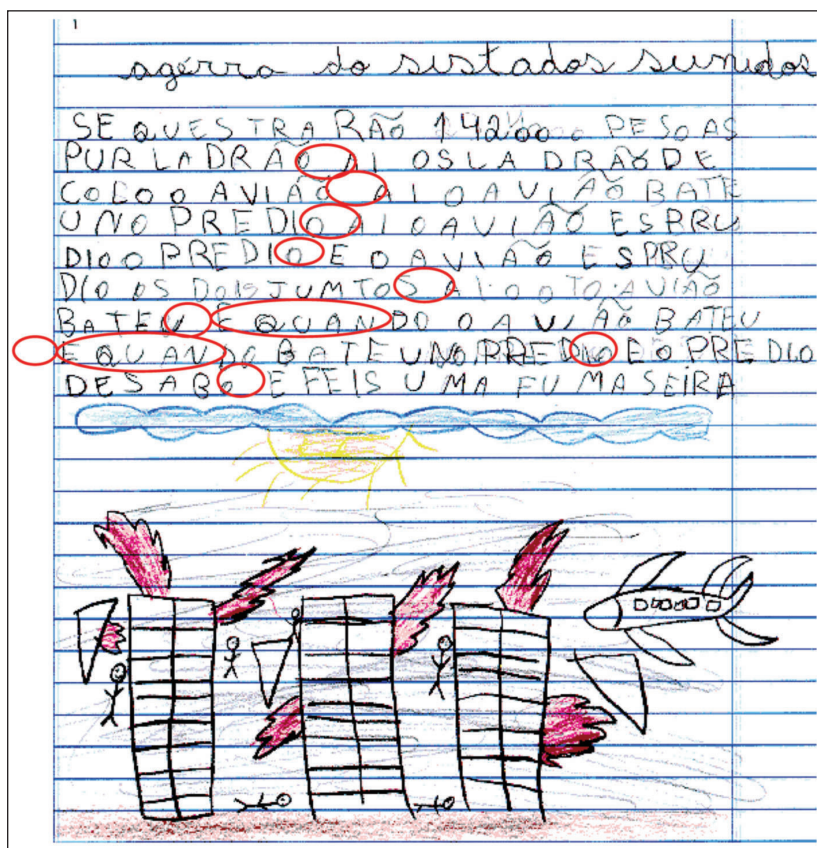 1
agerra do sistados sunidos
SE QUESTRARÃO 14200 PESOAS
PUR LADRÃO AI OSLA DRÃODE
COLOO AVIÃO AI O AVIÃO BATE
U NO PREDIO AI O AVIÃO ESPRU
DIO O PREDIO E O AVIÃO ESPRU
DIO OS DOIS JUMTOS AI O OTO AVIÃO
BATEU E QUANDO O AVIÃO BATEU
E QUANDO BATE UNO PREDIO E O PREDIO
DESABO E FEIS UMA FUMASEIRA